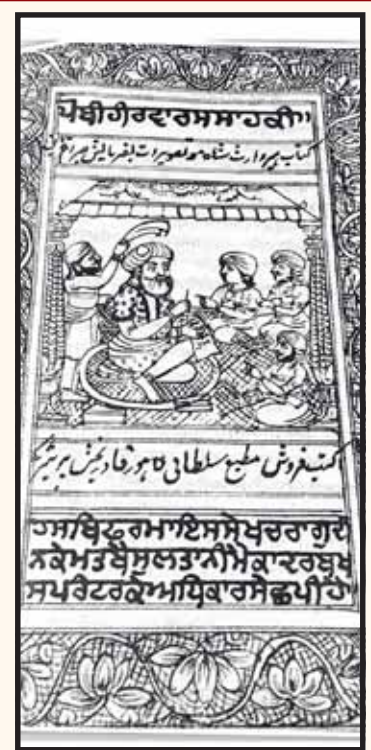 ਪੋਥੀਹੀਰਵਾਰਸਸਾਹਕੀ"
کتاب ہیر وارث شاہ مع تصویرات
کتب فروش مطبع سلطانی لاہور
ਹਸਬਿਫੁਰਮਾਇਸਸੇਖਚਰਾਗੁਦੀ
ਨਕੇਮਤਬੈਸੁਲਤਾਨੀਮੈਕਾਦਰਬਖ਼
ਸਪਰਿੰਟਰਕੇਅਧਿਕਾਰਸੇਛਪੀਹਾ